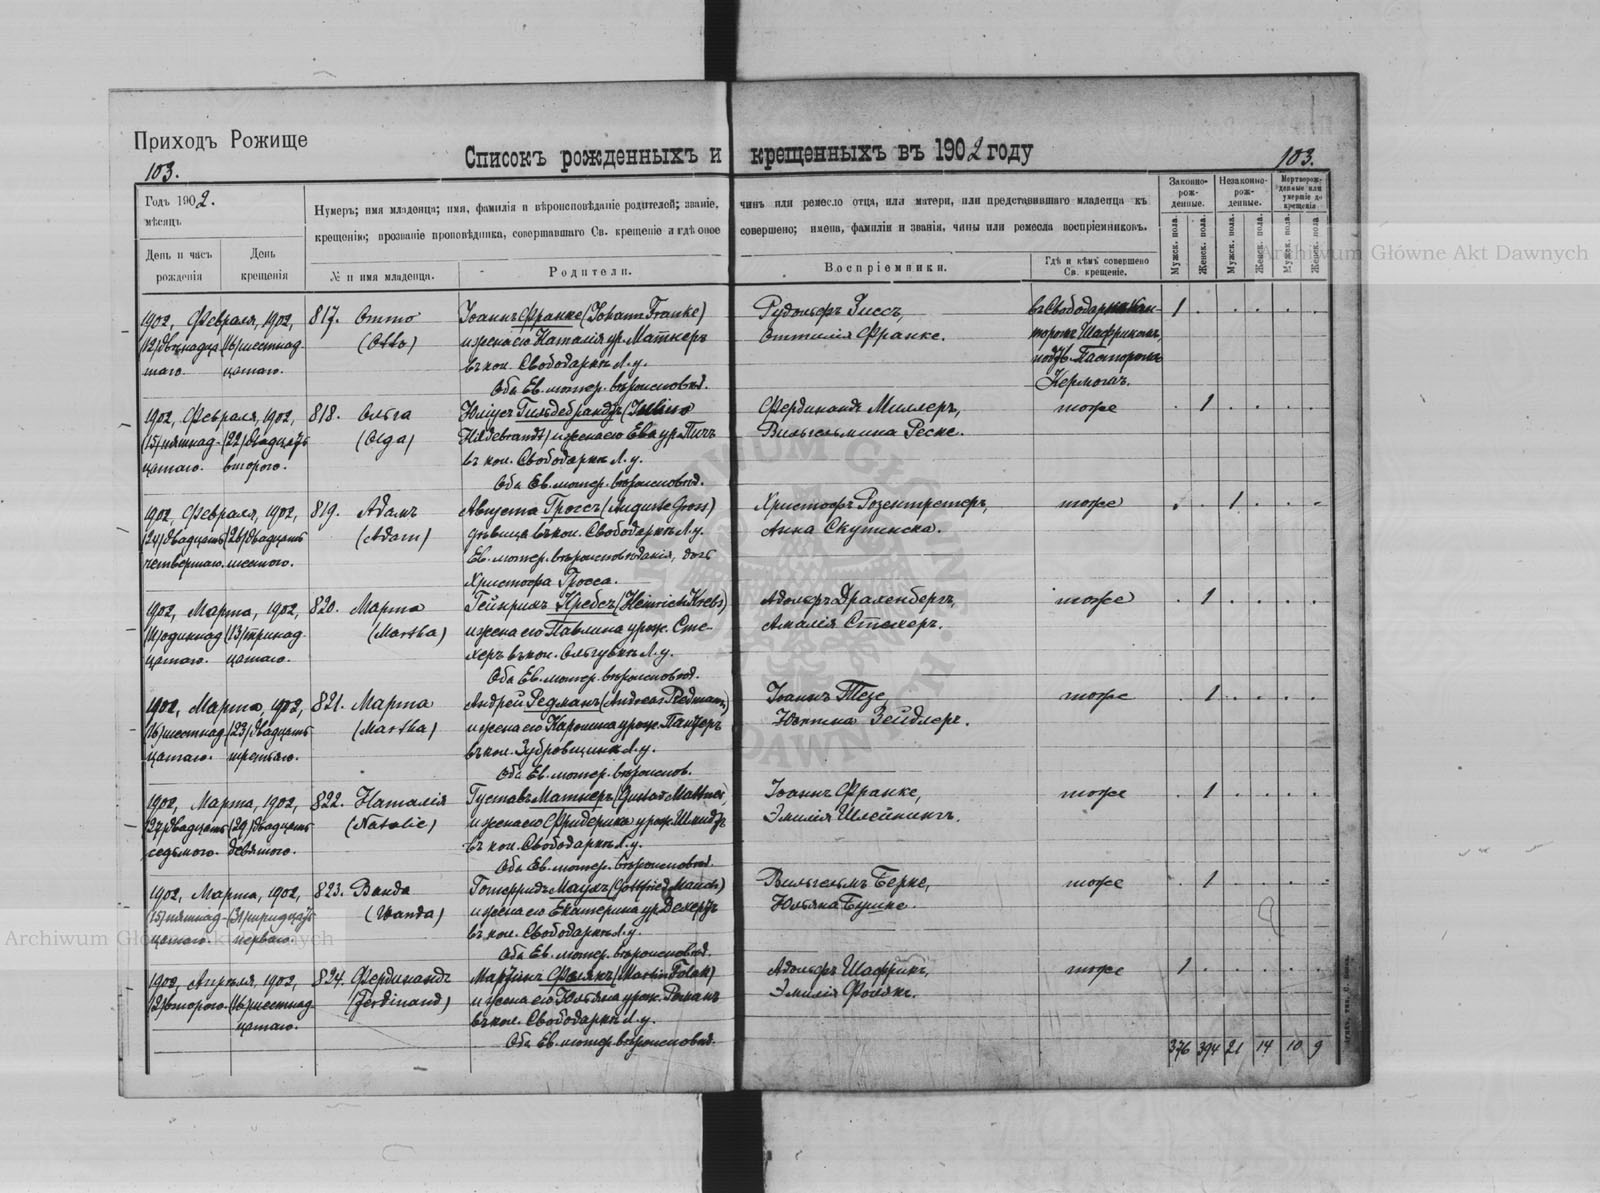 Приходъ Рожище
103.
Списокъ рожденныхъ и крещенныхъ въ 1902 году
103.
Годъ 1902.
мѣсяцъ
День и часъ рожденія
День крещенія
Нумеръ; имя младенца; имя, фамилія и вѣроисповѣданіе родителей; званіе, чинъ или ремесло отца, или матери, или представившаго младенца къ
крещенію; прозваніе проповѣдника, совершавшаго Св. крещеніе и гдѣ оное совершено; имена, фамиліи и званія, чины или ремесла воспріемниковъ.
№ и имя младенца.
Родители.
Воспріемники.
Гдѣ и кѣмъ совершено Св. крещеніе.
Законно-рож-денные.
Незаконно-рож-денные.
Мертворож-денные или умершіе до крещенія
Мужск. пола.
Женск. пола.
Мужск. пола.
Женск. пола.
Мужск. пола.
Женск. пола.
1902, Февраля, 1902,
(12) двѣнадца-
таго.
(16) шестнад-
цатаго.
817. Отто
(Otto)
Іоаннъ Франке (Johann Franke)
и жена его Наталія ур. Матнеръ
въ кол. Свободаркѣ Л. у.
Оба Ев. лютер. вѣроисповѣд.
Рудольфъ Риссъ,
Оттилія Франке.
1
1902, Февраля, 1902,
(15) пятнад-
цатаго.
(22) двадцать
второго.
818. Ольга
(Olga)
Юліусъ Гильдебрандтъ (Julius
Hildebrandt) и жена его Ева ур. Пичъ
въ кол. Свободаркѣ Л. у.
Оба Ев. лютер. вѣроисповѣд.
Фердинандъ Миллеръ,
Вильгельмина Реске.
тоже
1
1902, Февраля, 1902,
(24) двадцать
четвертаго.
(26) двадцать
шестого.
819. Адамъ
(Adam)
Августа Гроссъ (Auguste Gross)
дѣвица въ кол. Свободаркѣ Л. у.
Ев. лютер. вѣроисповѣданія, дочь
Христофа Гросса.
Христофъ Розентретеръ,
Анна Скутинска.
тоже
1
1902, Марта, 1902,
(11) одиннад-
цатаго.
(13) тринад-
цатаго.
820. Марта
(Martha)
Гейнрихъ Кребсъ (Heinrich Krebs)
и жена его Павлина урож. Сте-
херъ въ кол. Ольгувкѣ Л. у.
Оба Ев. лютер. вѣроисповѣд.
Адольфъ Драхенбергъ,
Амалія Стехеръ.
тоже
1
1902, Марта, 1902,
(16) шестнад-
цатаго.
(23) двадцать
третьяго.
821. Марта
(Martha)
Андрей Редманъ (Andreas Redmann)
и жена его Каролина урож. Панцеръ
въ кол. Зубровщинѣ Л. у.
Оба Ев. лютер. вѣроиспов.
Іоаннъ Тезе
Юстина Зейдлеръ.
тоже
1
1902, Марта, 1902,
(27) двадцать
седьмого.
(29) двадцать
девятого.
822. Наталія
(Natalie)
Густавъ Матнеръ (Gustav Mattner,
и жена его Фридерика урож. Шмидтъ
въ кол. Свободаркѣ Л. у.
Оба Ев. лютер. вѣроисповѣд.
Іоаннъ Франке,
Эмилія Шлейнингъ.
тоже
1
1902, Марта, 1902,
(15) пятнад-
цатаго.
(31) тридцать
перваго.
823. Ванда
(Wanda)
Готфридъ Маухъ (Gottfried Mauch)
и жена его Екатерина ур. Дехертъ
въ кол. Свободаркѣ Л. у.
Оба Ев. лютер. вѣроисповѣд.
Вильгельмъ Берке,
Юльяна Бушке.
тоже
1
1902, Апрѣля, 1902,
(2) второго.
(16) шестнад-
цатаго.
824. Фердинандъ
(Ferdinand)
Мартинъ Фолякъ (Martin Folak)
и жена его Юльяна урож. Романъ
въ кол. Свободаркѣ Л. у.
Оба Ев. лютер. вѣроисповѣд.
Адольфъ Шафрикъ,
Эмилія Фолякъ.
тоже
1
376 394 21 14 10 9
Archiwum Główne Akt Dawnych
Archiwum Główne Akt Dawnych